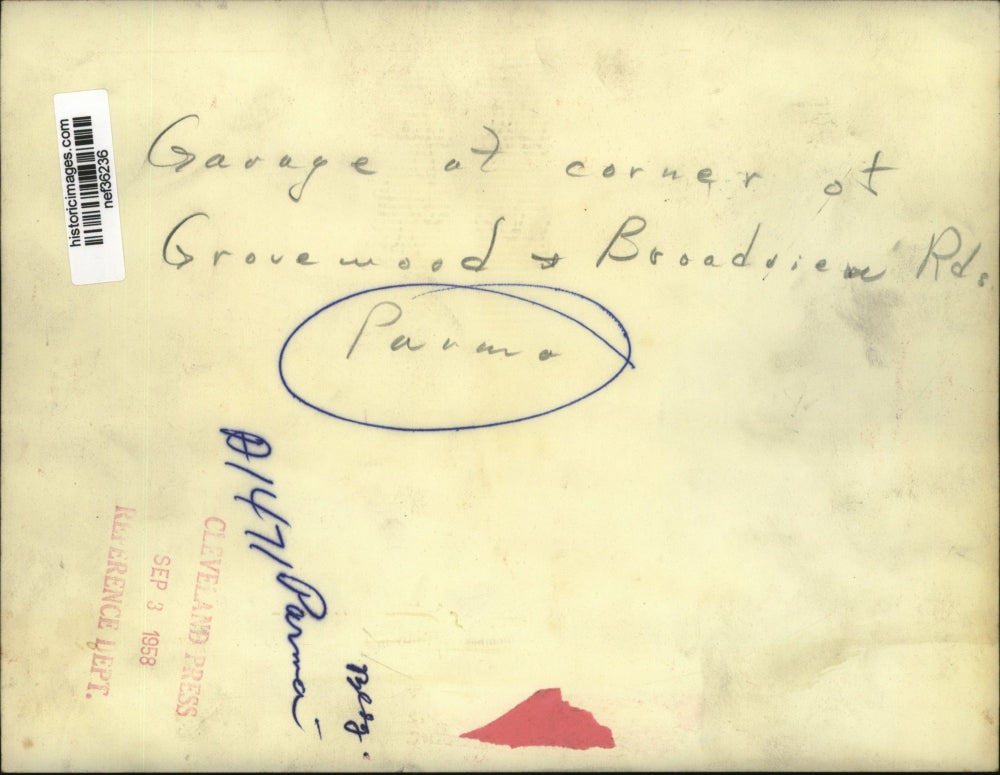 historicimages.com
nef36236
Garage at corner of
Grovewood & Broadview Rds.
Parma
A1471 Parma
CLEVELAND PRESS
SEP 3 1958
REFERENCE DEPT.